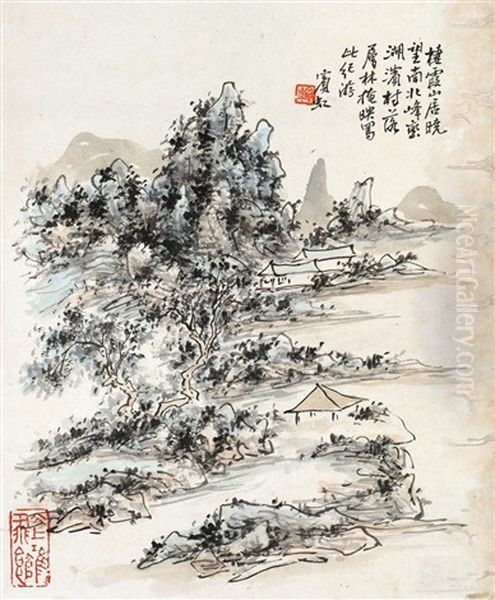 棲霞山居曉
望南北峰巒
湖濱村落
層林掩映寫
此紀游
賓虹
NiceArtGallery.com